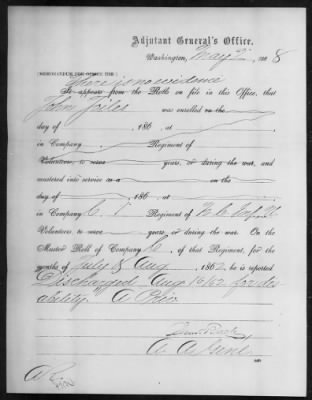 Adjutant General's Office,
Washington, May 2 , 1868
[MEMORANDUM FOR OFFICE USE.]
there is no evidence
It appears from the Rolls on file in this Office, that
John was enrolled on the
day of , 186 , at
in Company , Regiment of
Volunteers, to serve years, or during the war, and
mustered into service as a on the
day of , 186 , at
in Company C. 1 Regiment of N. C.
Volunteers, to serve years, or during the war. On the
Muster Roll of Company C, of that Regiment, for the
months of July & Aug , 1862, he is reported
Discharged Aug 16/62 for dis
ability
A. A.